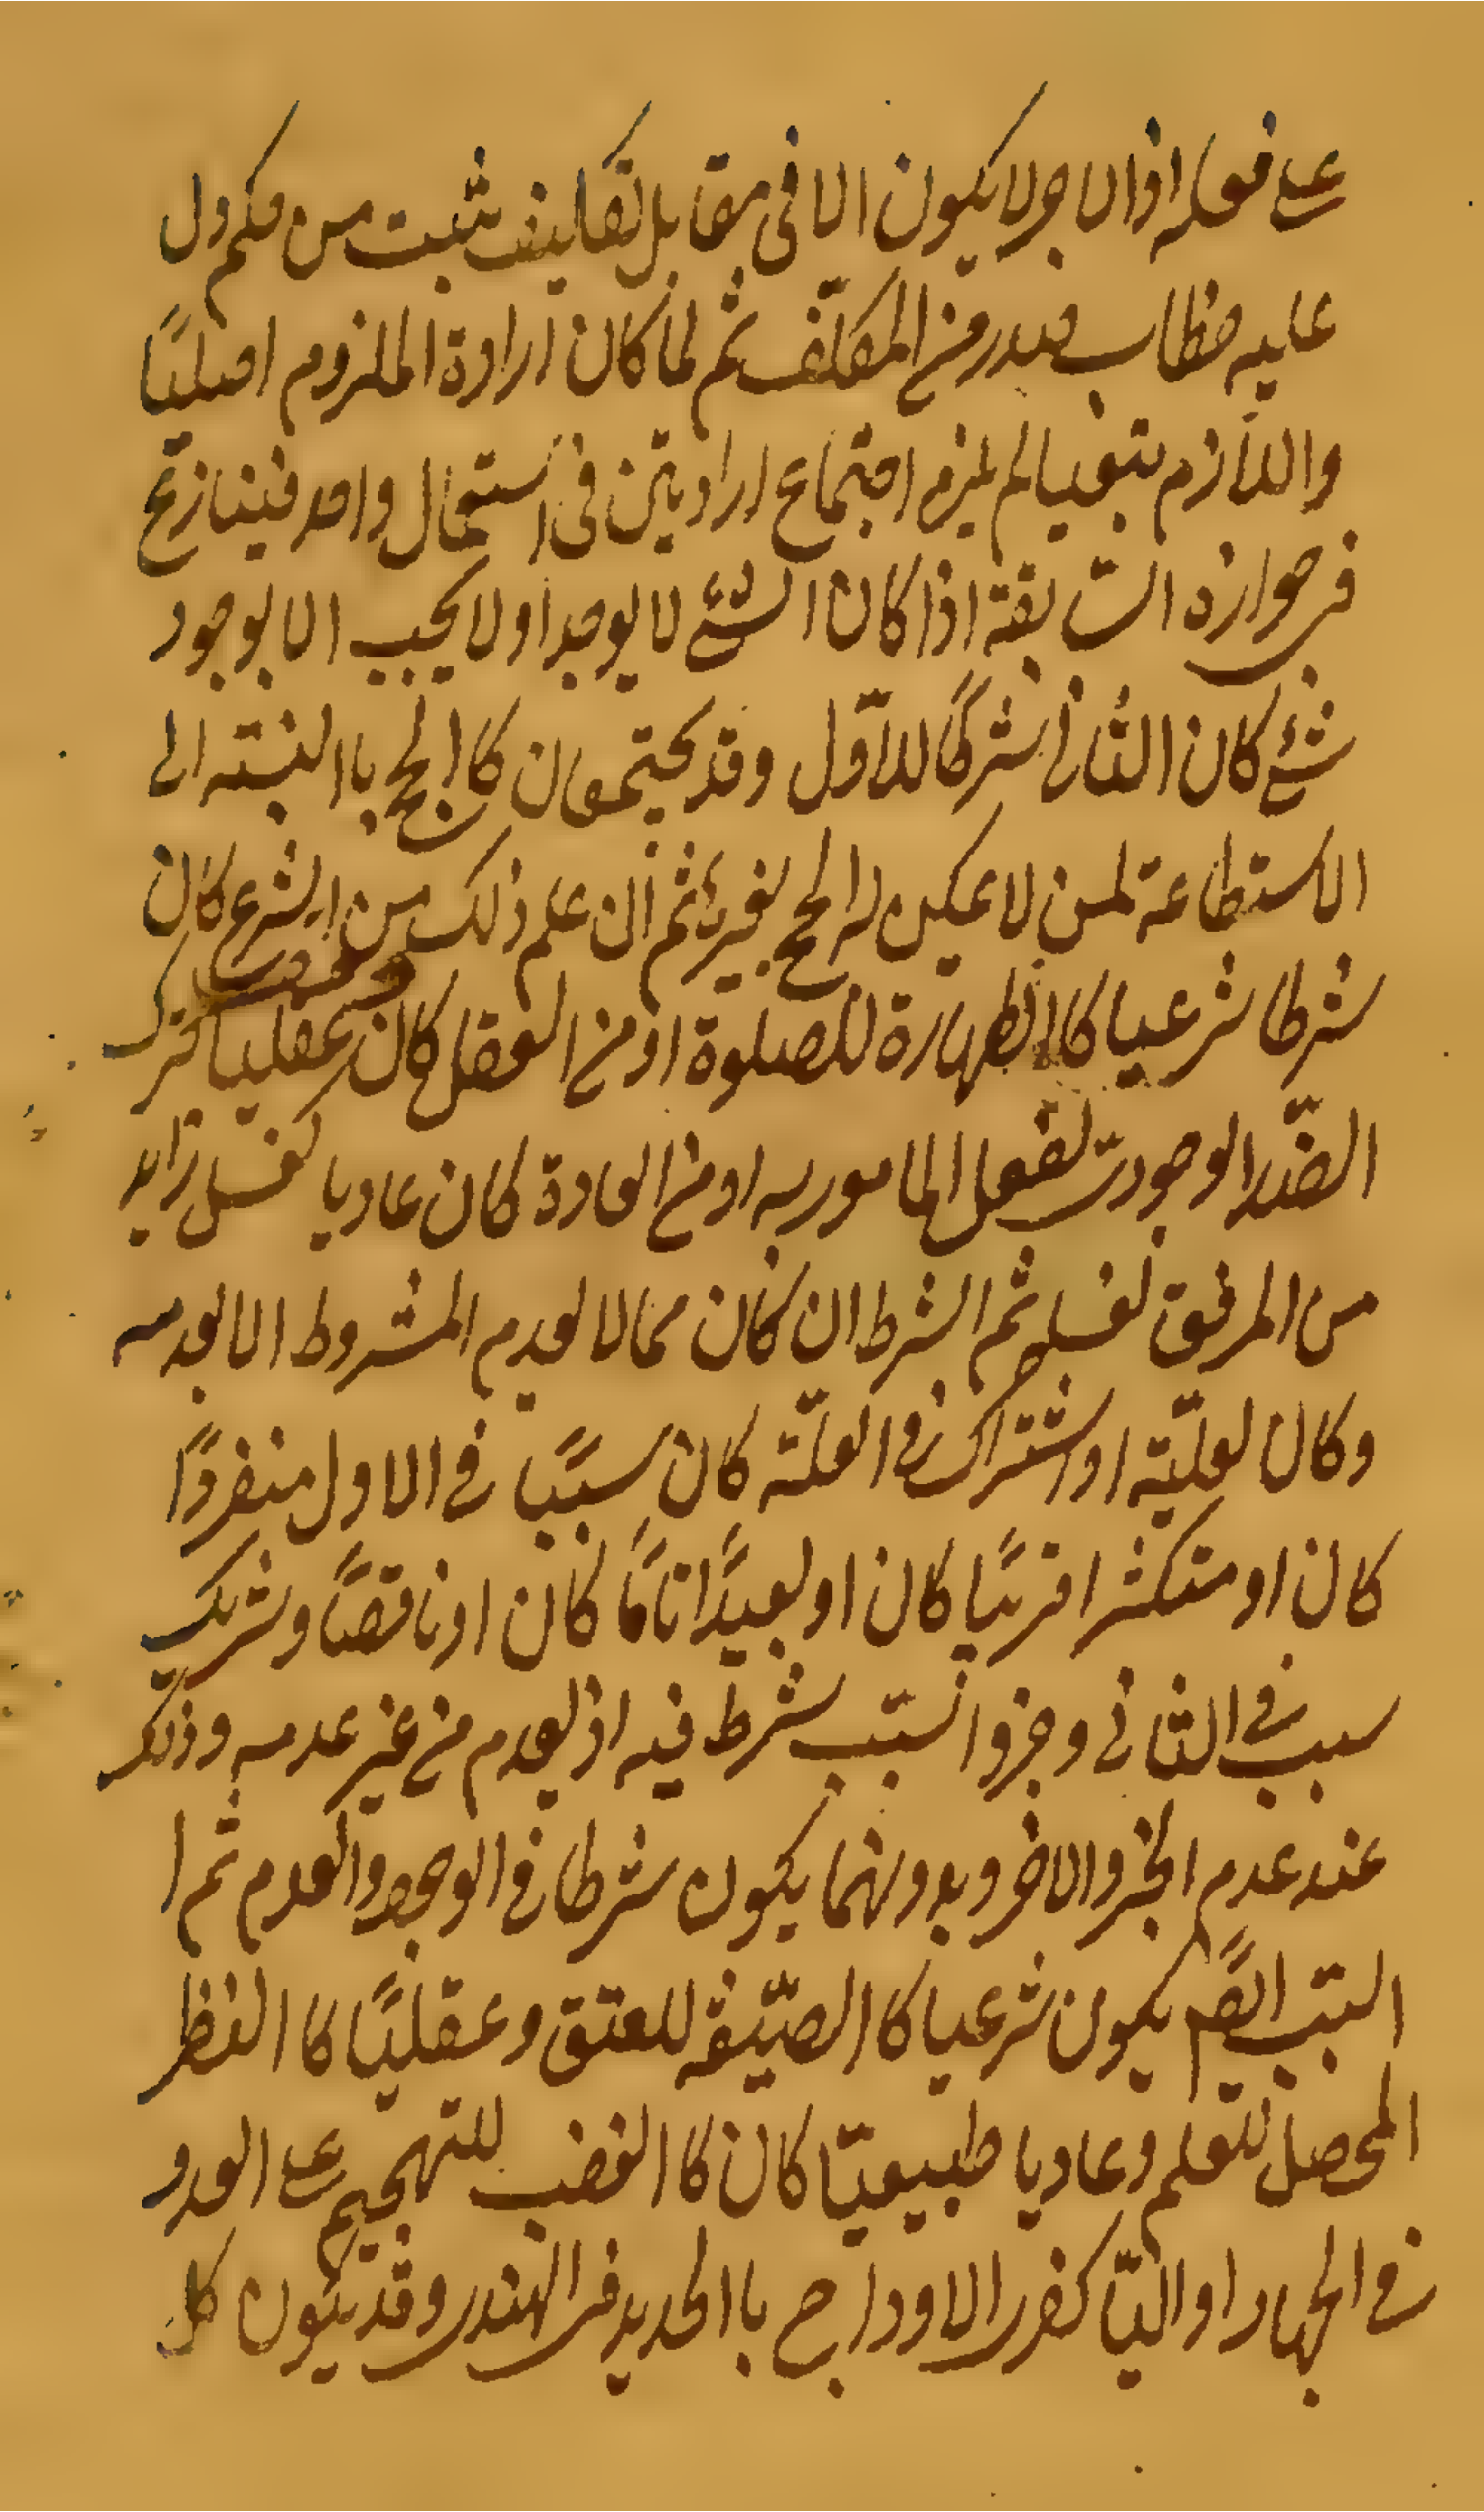 على فعله اذ الاجر لا يكون الا فى مقابل تكليف يثبت من حكم دل
عليه خطاب صدر من المكلّف ثم لما كان ارادة الملزوم اصليّا
واللازم تبعيا لم يلزم اجتماع ارادتين فى استعمال واحد فينازع
فى جوازه السابقة اذا كان الشئ لا يوجد او لا يجب الا بوجود
شئ كان الثانى شرطا للاوّل وقد يجتمعان كاالحج باالنسبته الى
الاستطاعة لمن لا يمكن له الحج بغيرها ثم ان علم ذلك من الشرع كان
شرطا شرعيا كاالطهارة للصلوة او من العقل كان عقليا كترك
الضّد الوجودى لفعل المامور به او من العادة كان عاديا كغسل زايد
من المرفق لغسله ثم الشرط ان كان مما لا يعدم المشروط الا بعدمه
وكان لعليّته او اشتراك فى العلّته كان سببًا فى الاول منفردًا
كان او متكثرا قريبًا كان او بعيدًا تامًا كان او ناقصًا وشريك
سبب فى الثانى وجزوا لسبّب شرط فيه اذ يعدم من غير عدمه وذلك
عند عدم الجزو الاخر وبدونهما يكون شرطا فى الوجود والعدم ثم ا
لسبّب ايضًا يكون شرعيا كاالصيّغة للعتق وعقليًا كاالنظر
المحصل للتعلم وعاديا طبيعيّا كان كاالغضب للتهجيم على العدو
فى الجهاد او اليّا كفرى الاوداج باالحديد فى الهندى وقد يكون كل